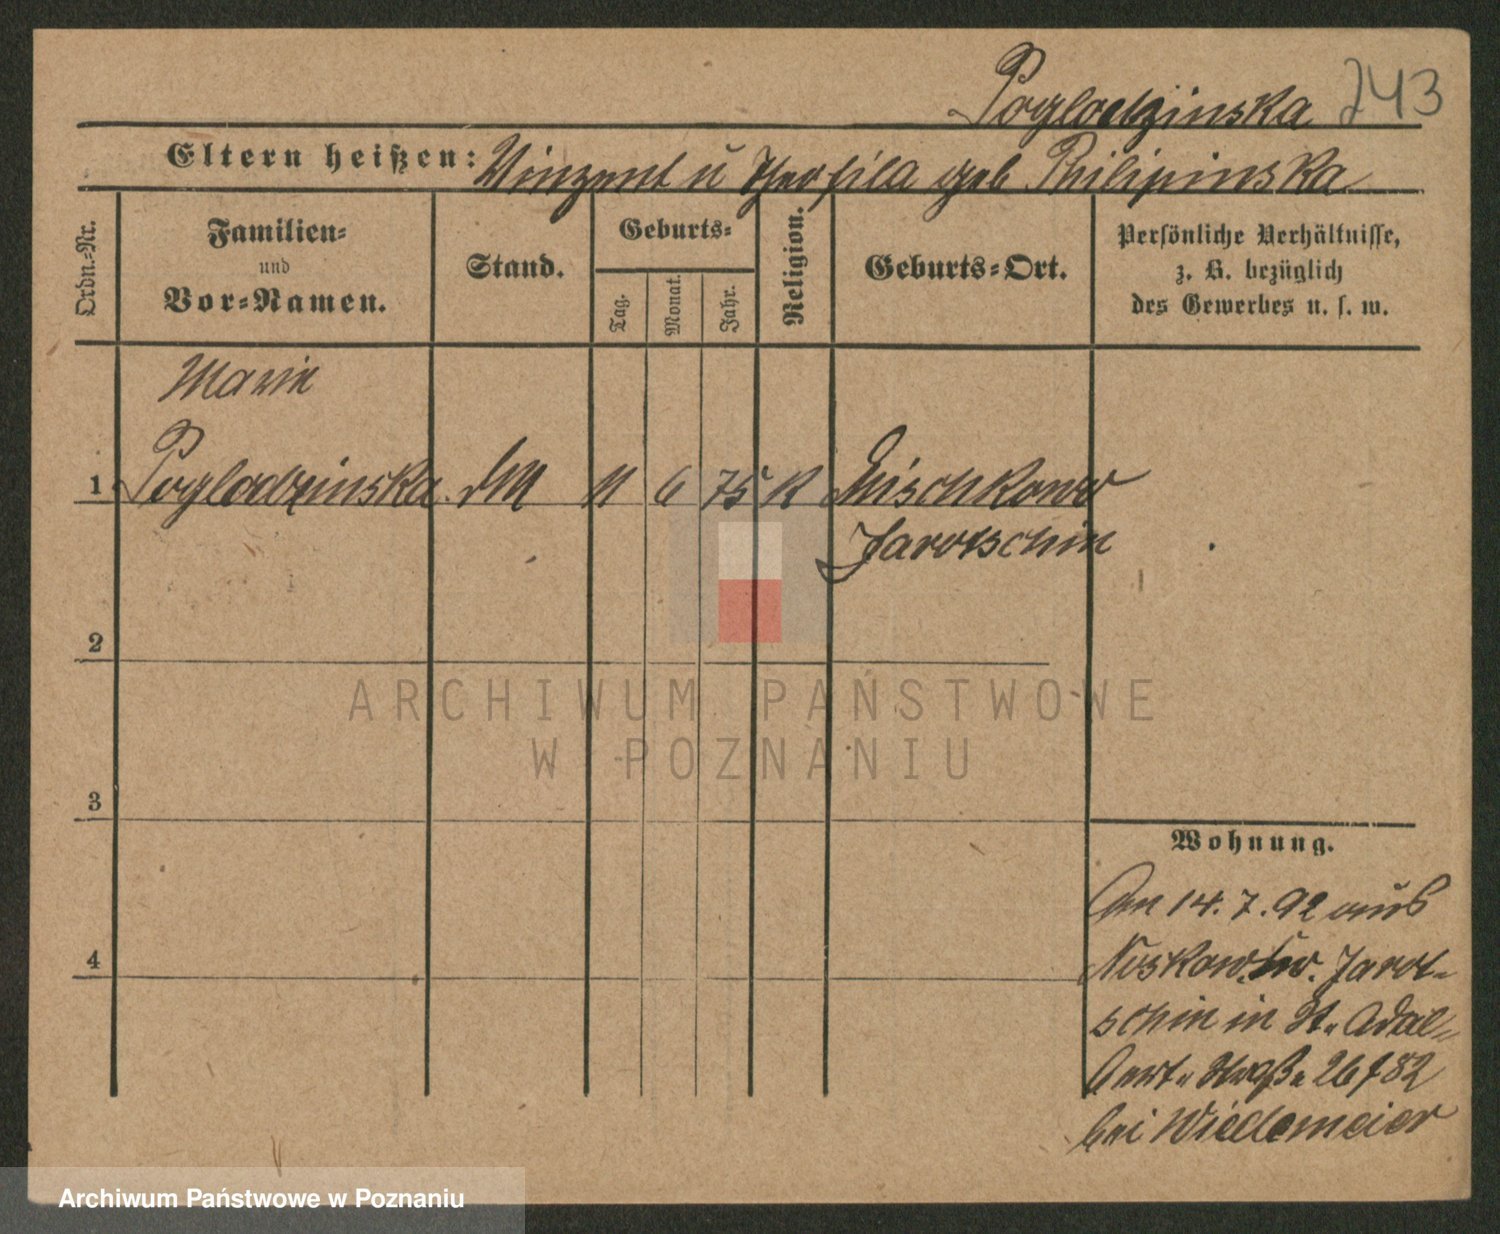 Poglodzinska 243
Eltern heißen: Vinzent ū Theofila geb Philipinska
Ordn.-Nr.
Familien-
und
Vor-Namen.
Stand.
Geburts-
Tag.
Monat.
Jahr.
Religion.
Geburts-Ort.
Persönliche Verhältnisse,
z. B. bezüglich
des Gewerbes u. s. w.
Marie
1 Poglodzinska DM 11 6 75 K Mischkowo
Jarotschin
2
ARCHIWUM PAŃSTWOWE
W POZNANIU
3
Wohnung.
Am 14. 7. 92 aus
4
Noskow Jarot-
schin in St. Adal-
bert- Straße 26/82
bei Wiedemeier
Archiwum Państwowe w Poznaniu